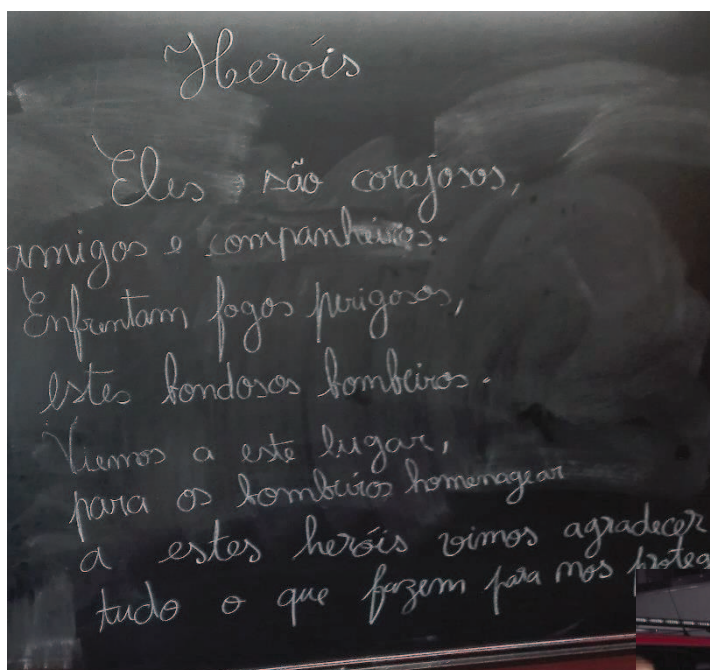 Heróis
Eles são corajosos,
amigos e companheiros.
Enfrentam fogos perigosos,
estes bondosos bombeiros.
Viemos a este lugar,
para os bombeiros homenagear
a estes heróis vimos agradecer
tudo o que fazem para nos